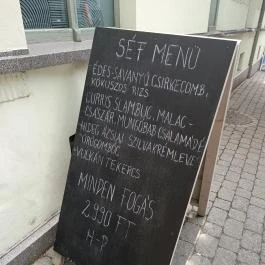 SÉF MENÜ
ÉDES-SAVANYÚ CSIRKECOMB,
KÓKUSZOS RIZS
CURRIS SLAMBUC, MALAC-
CSÁSZÁR, MUNGÓBAB CSALAMÁDÉ
HIDEG ÁCSAI SZILVAKRÉMLEVES
TÚRÓGOMBÓC
VULKÁN TEKERCS
MINDEN FOGÁS
2.990 FT
H-P